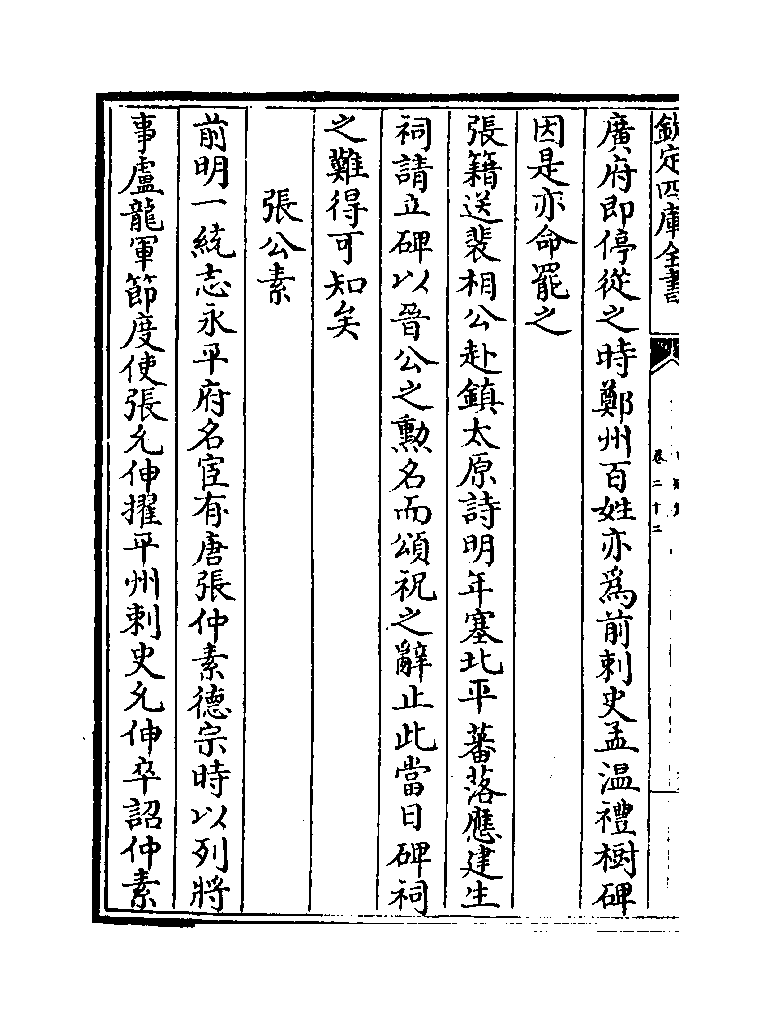 欽定四庫全書
卷二十二
廣府即停從之時鄭州百姓亦為前刺史孟溫禮樹碑
因是亦命罷之
張籍送裴相公赴鎮太原詩明年塞北平蕃落應建生
祠請立碑以晉公之勲名而頌祝之辭止此當日碑祠
之難得可知矣
張公素
前明一統志永平府名宦有唐張仲素德宗時以列將
事盧龍軍節度使張允伸擢平州刺史允伸卒詔仲素